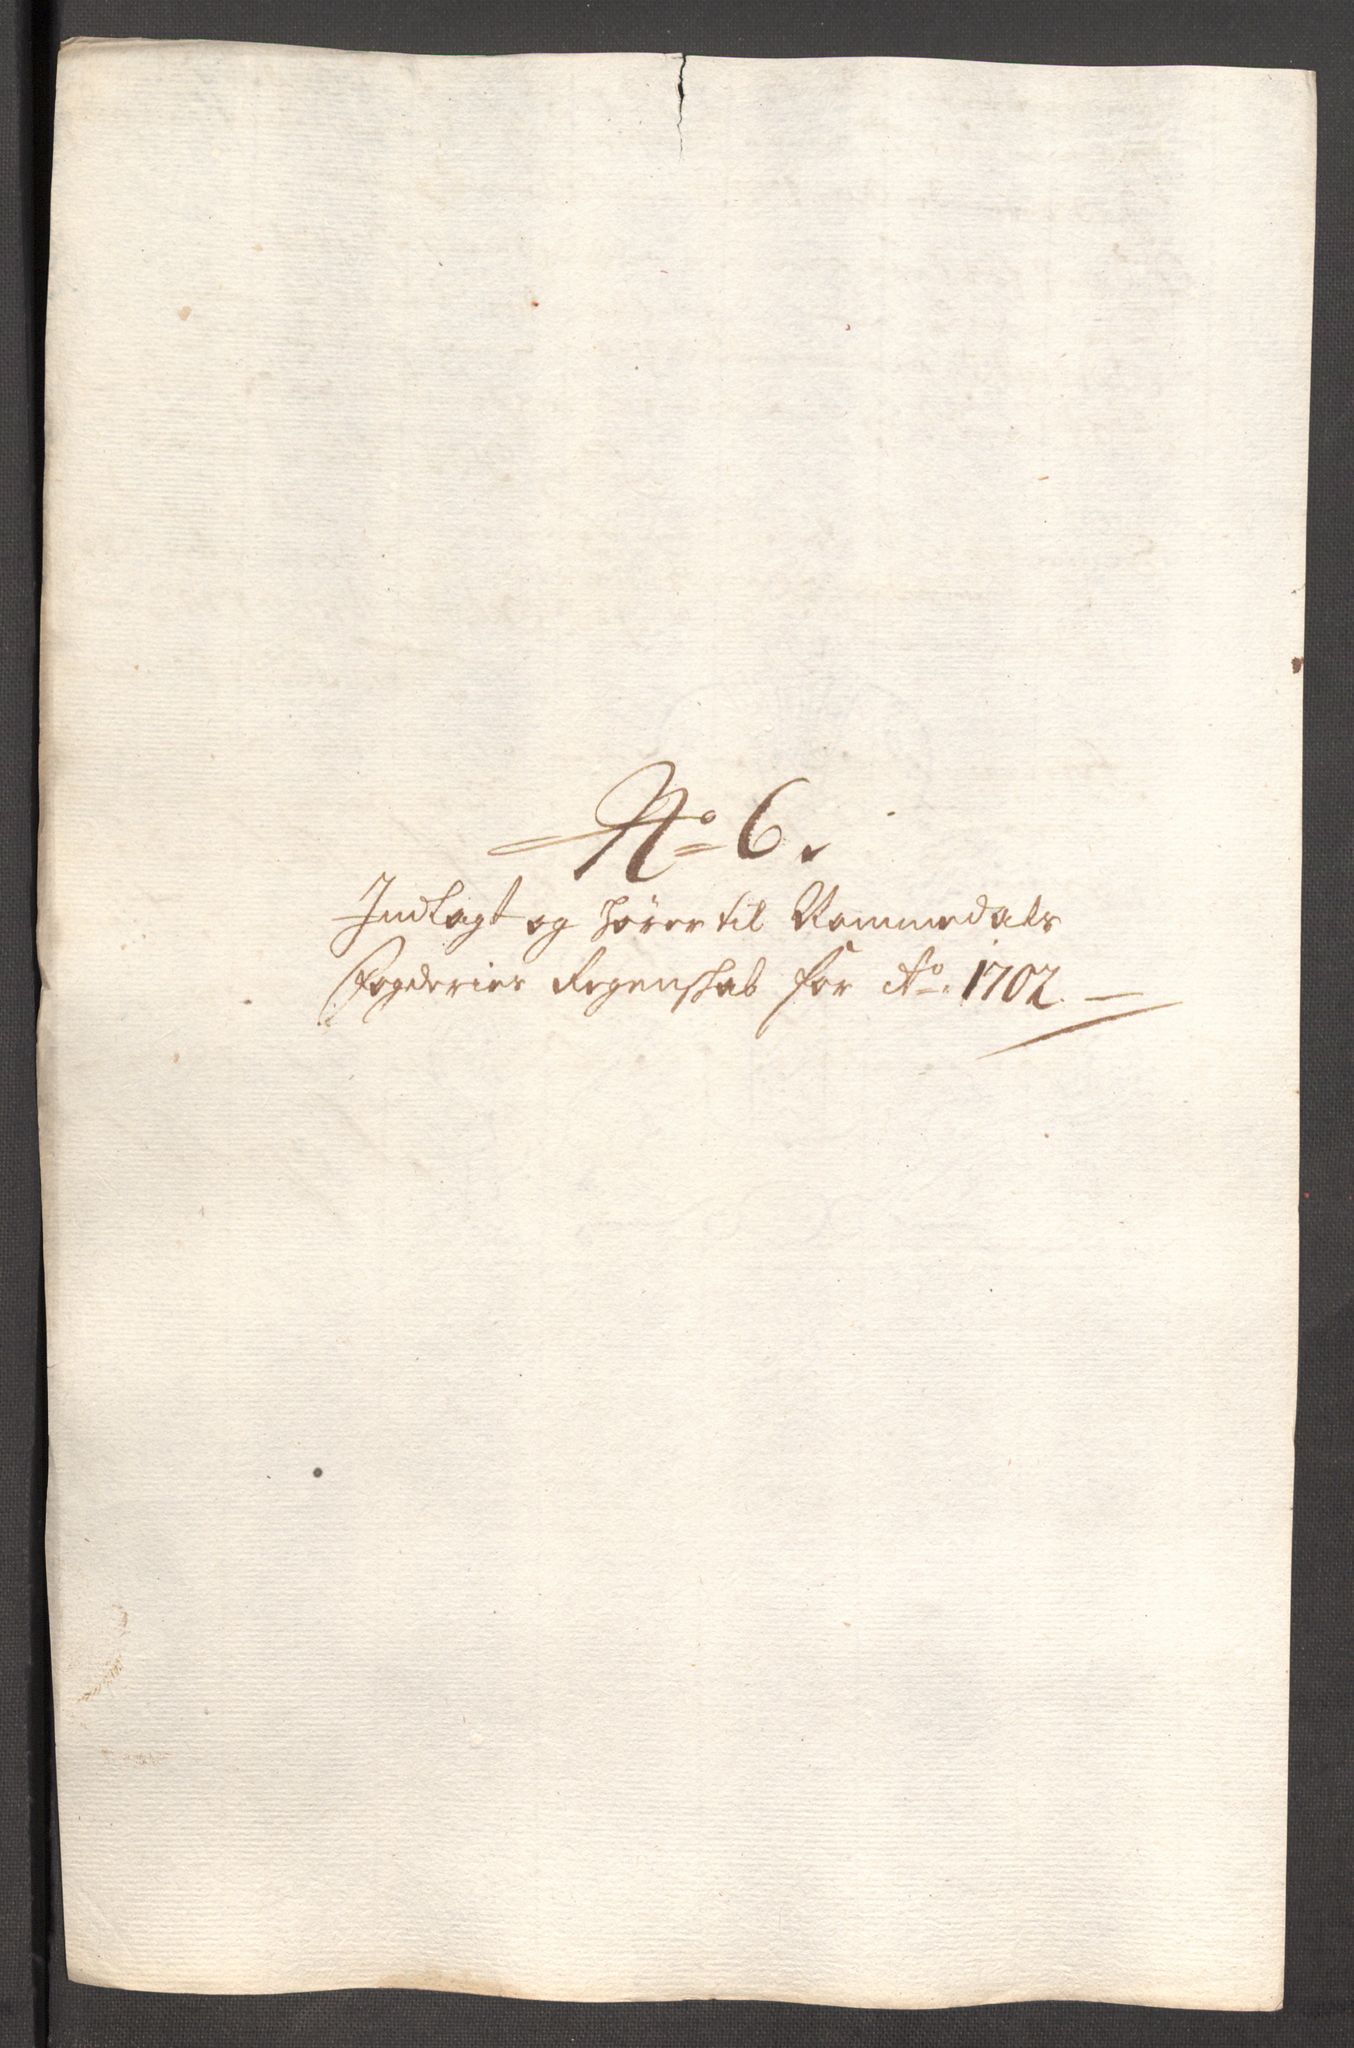 No 6.
Indlagt og hører til Nommedals
Fogderies Regenskab for Ao. 1702.